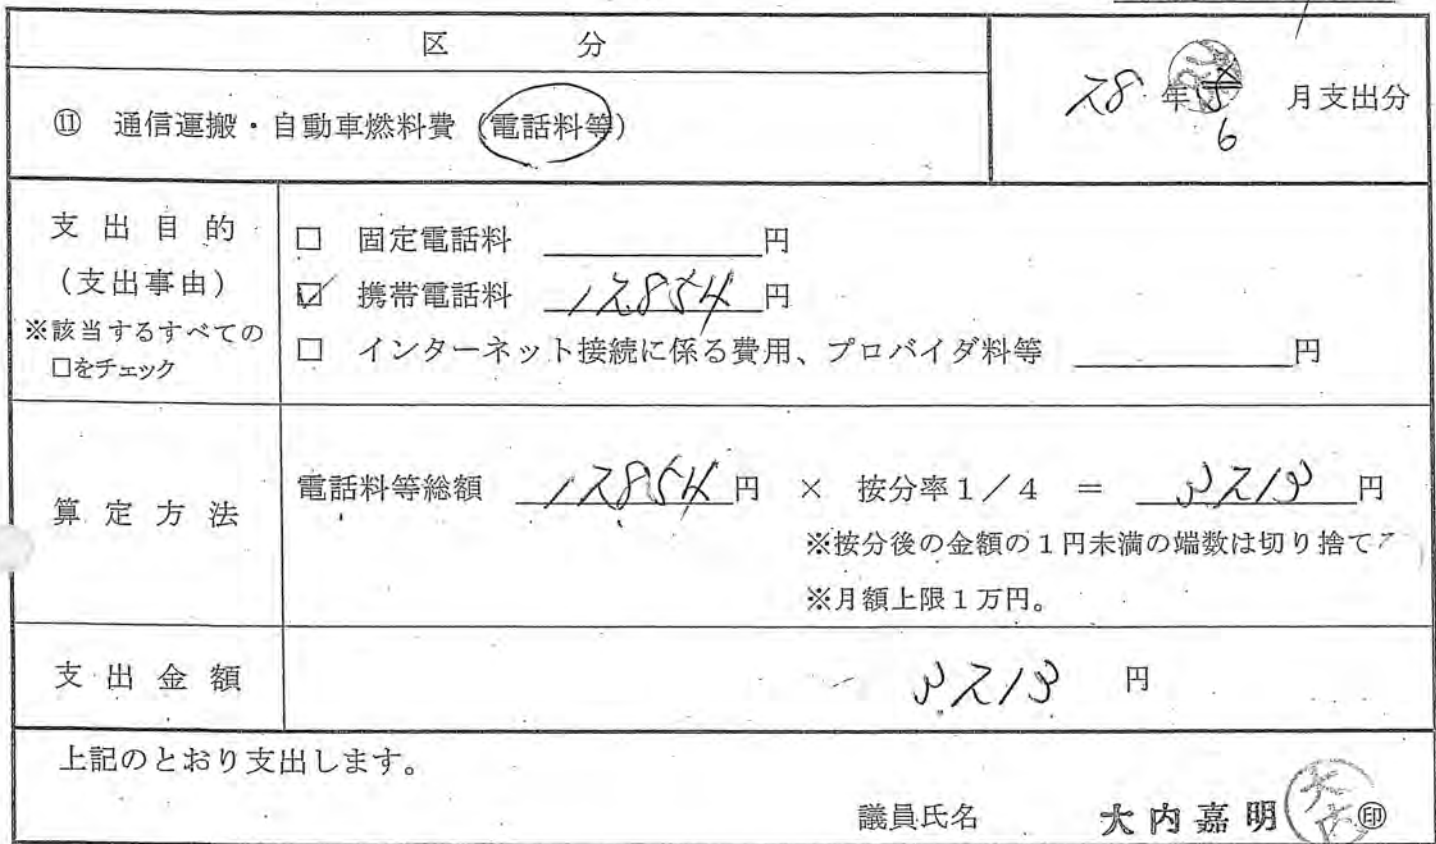 区 分
⑪ 通信運搬・自動車燃料費（電話料等）
28 年 6 月支出分
支出目的
（支出事由）
※該当するすべての
□をチェック
□ 固定電話料 円
☑ 携帯電話料 12854 円
□ インターネット接続に係る費用、プロバイダ料等 円
算定方法
電話料等総額 12854 円 × 按分率１／４ ＝ 3213 円
※按分後の金額の１円未満の端数は切り捨て
※月額上限１万円。
支出金額
3213 円
上記のとおり支出します。
議員氏名 大内嘉明 ㊞